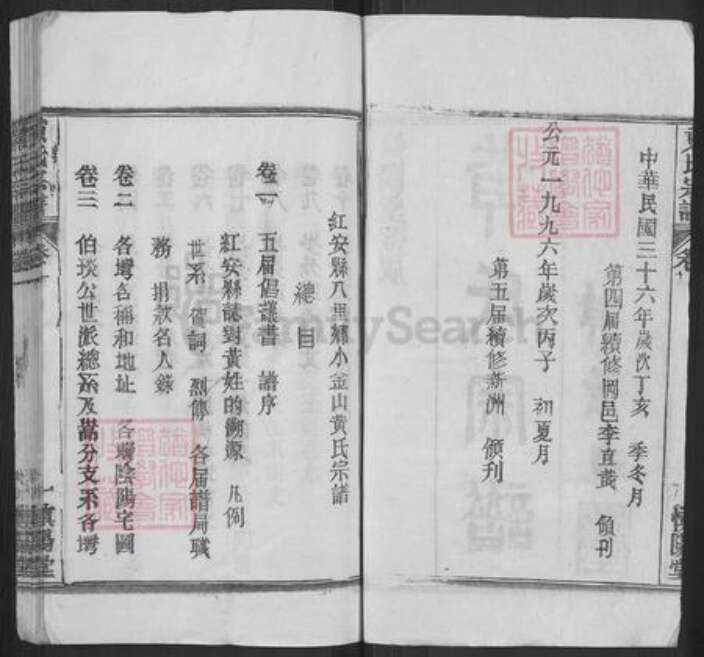 中華民國三十六年歲次丁亥 季冬月
第四届續修岡邑李直黃 傾刊
公元一九九六年歲次丙子 初夏月
第五届續修新洲 傾刊
紅安縣八里鄉小金山黃氏宗譜
總目
卷一 五届倡議書 譜序
紅安縣誌對黃姓的溯源 凡例
世系 賀詞 烈傳 各届譜局職
務 捐款名人錄
卷二 各塆名稱和地址 各聯陰陽宅圖
卷三 伯琰公世派總系及嵩分支系各塆
FamilySearch